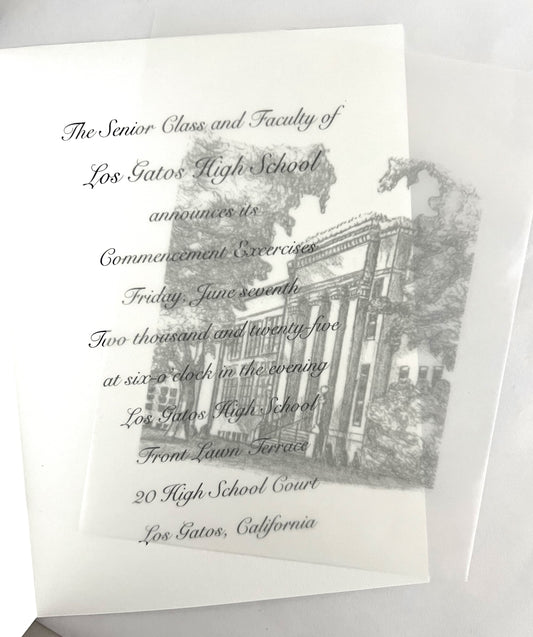 The Senior Class and Faculty of
Los Gatos High School
announces its
Commencement Exercises
Friday, June seventh
Two thousand and twenty-five
at six-o'clock in the evening
Los Gatos High School
Front Lawn Terrace
20 High School Court
Los Gatos, California